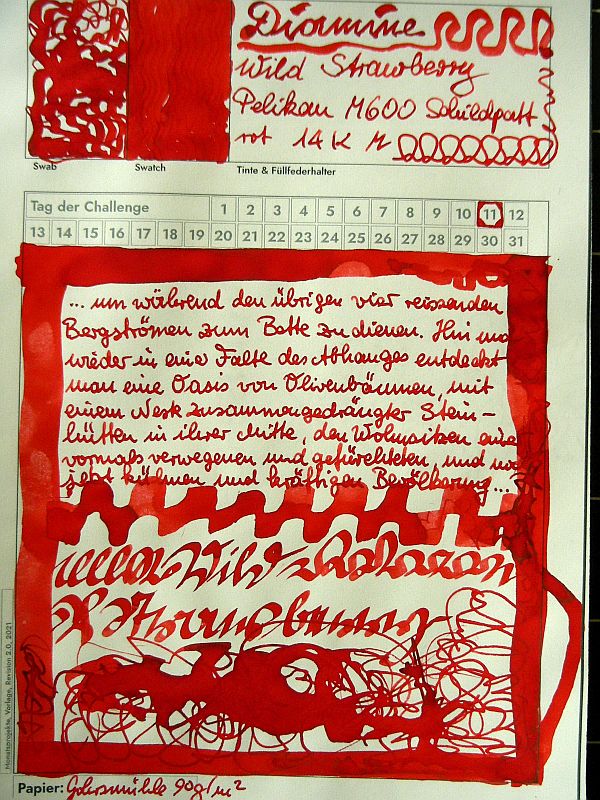 Diamine
Wild Strawberry
Pelikan M600 Schildpatt
rot 14K M
Swab Swatch Tinte & Füllfederhalter
Tag der Challenge 1 2 3 4 5 6 7 8 9 10 11 12
13 14 15 16 17 18 19 20 21 22 23 24 25 26 27 28 29 30 31
... um während den übrigen vier reissenden
Bergströmen zum Bette zu dienen. Hin und
wieder in einer Falte des Abhanges entdeckt
man eine Oasis von Olivenbäumen, mit
einem Nest zusammengedrängter Stein-
hütten in ihrer Mitte, den Wohnsitzen einer
vormals verwegenen und gefürchteten, und noch
jetzt kühnen und kräftigen Bevölkerung...
Wild
Strawberry
Monatsprojekte, Vorlage, Revision 2.0, 2021
Papier: Gohrsmühle 90g/m²